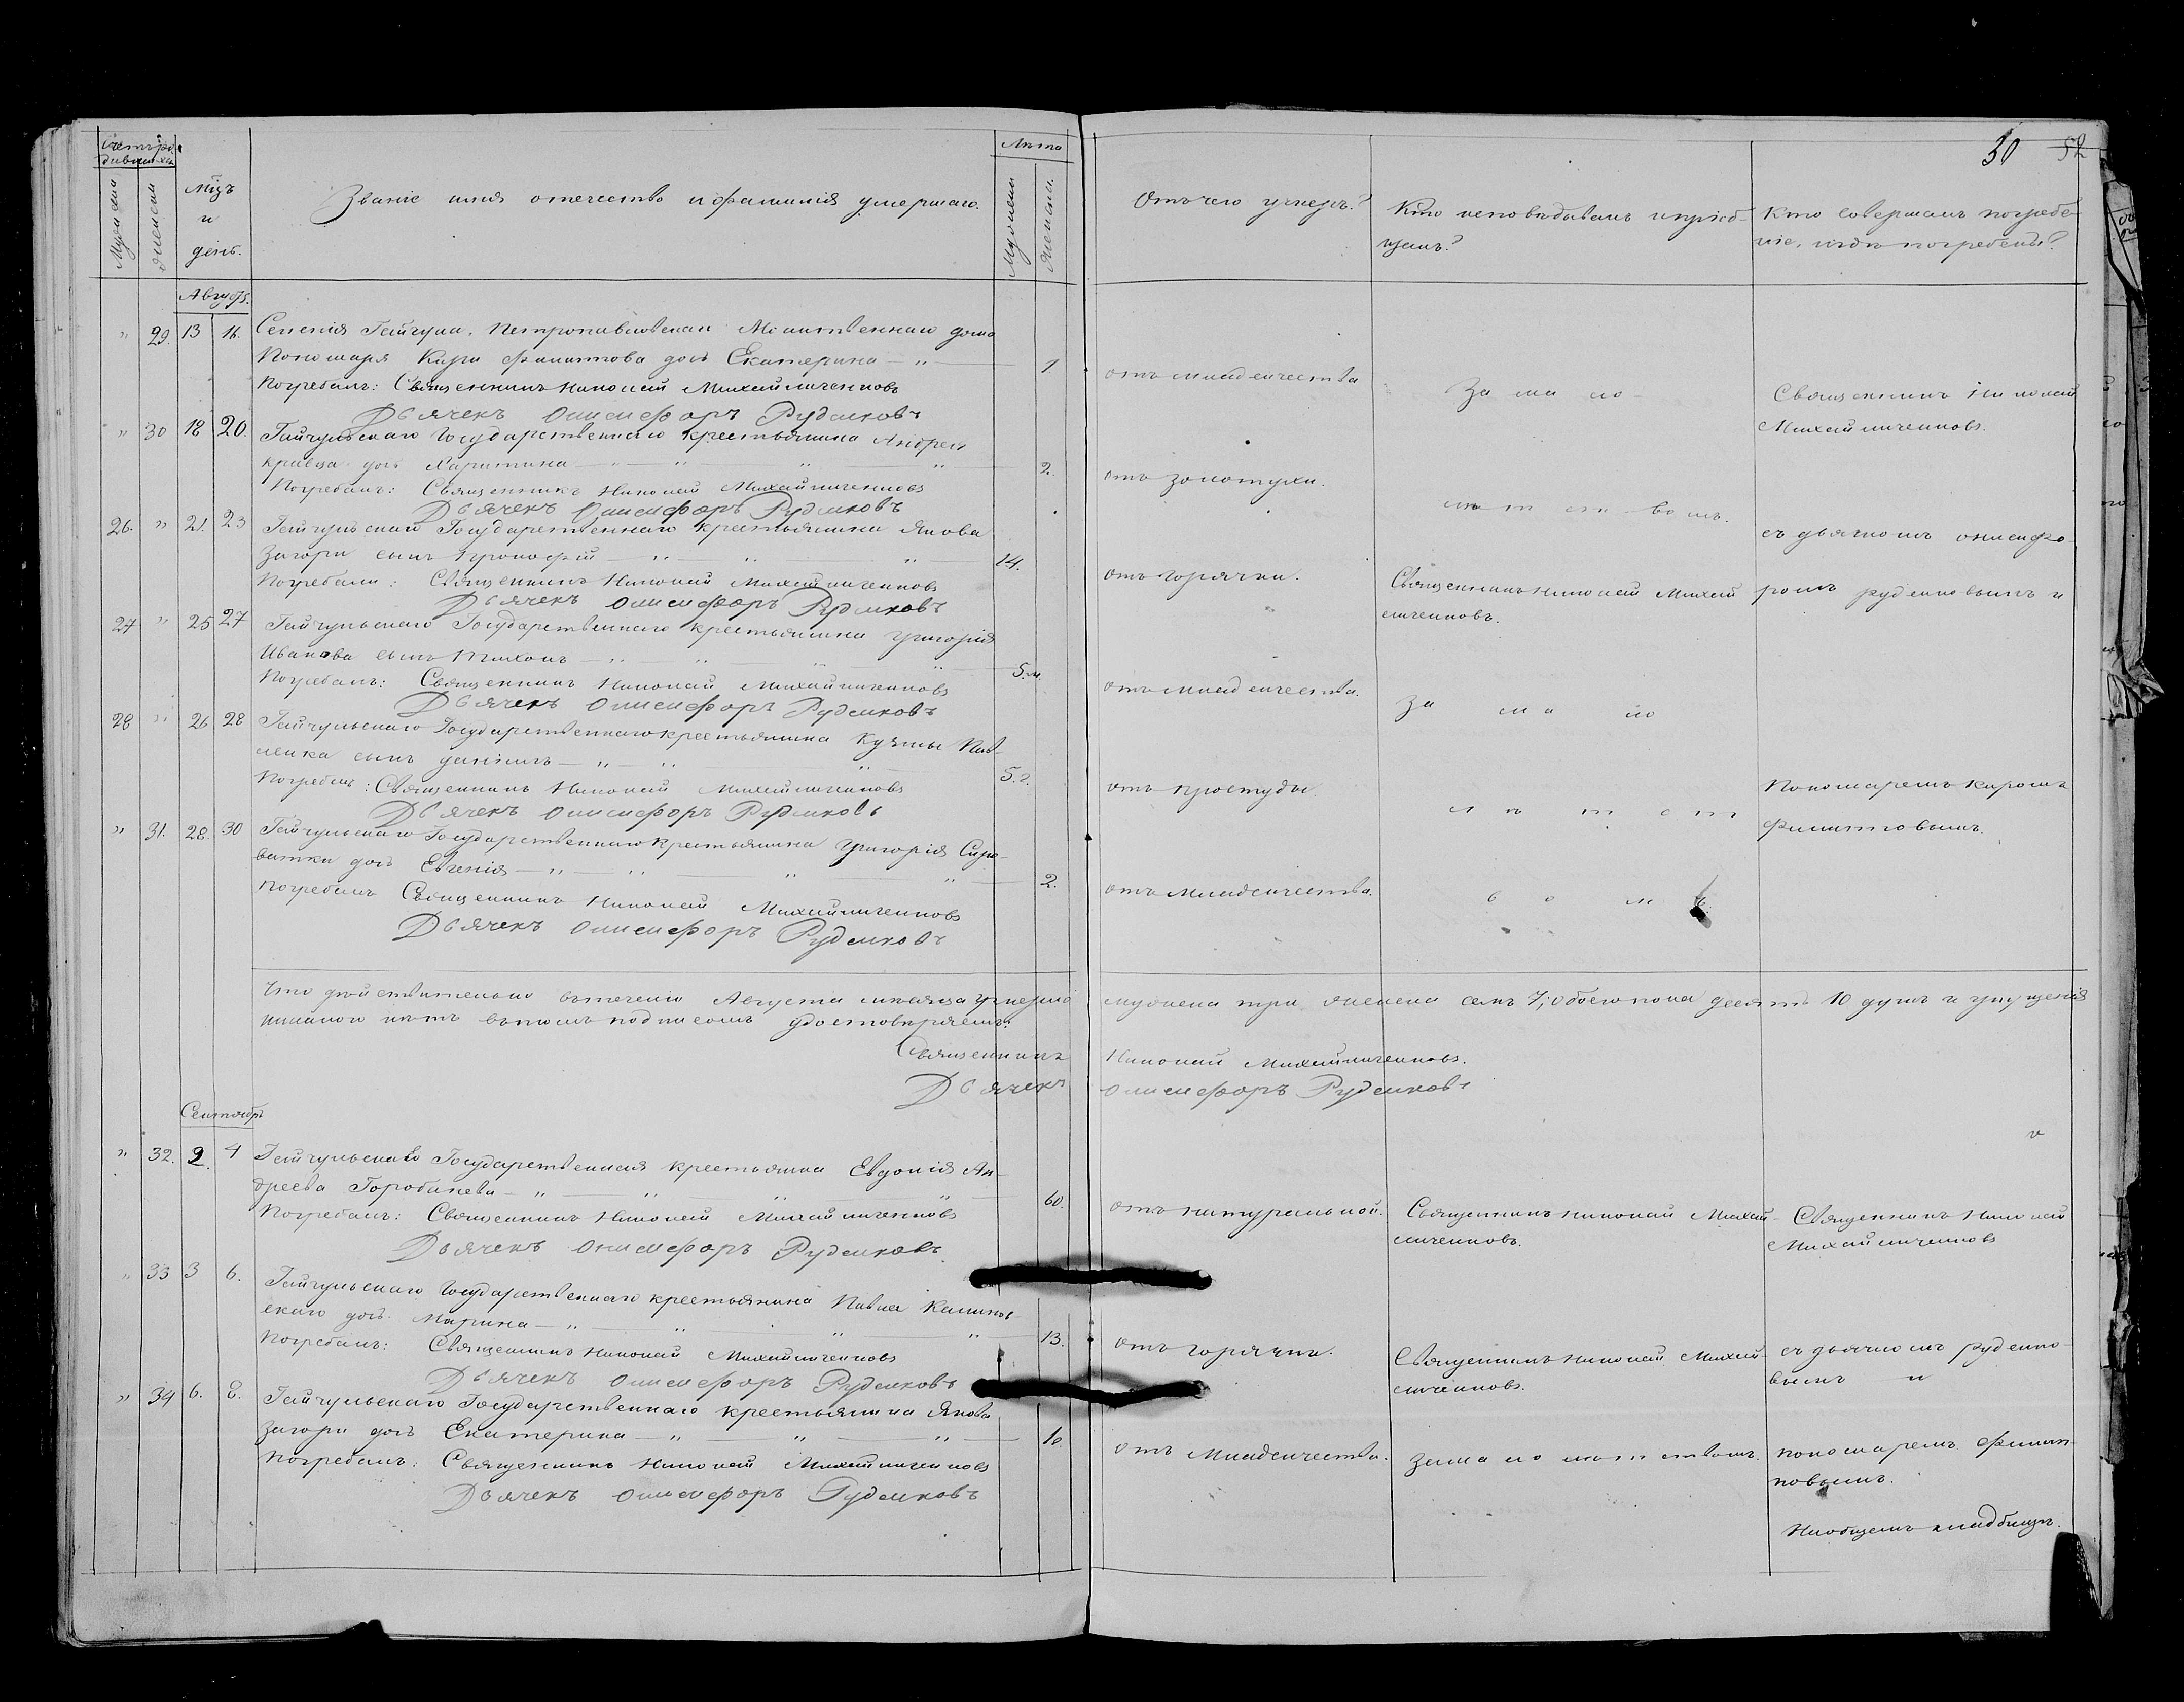 Счетъ ро-
дившихся
Мужеска
Женска
Мѣцъ
и
день.
Званіе имя отечество и фамилія умершаго.
Лѣта
Мужеска
Женска.
Отъ чего умеръ?
Кто исповѣдывалъ и пріоб-
щалъ?
Кто совершалъ погребе-
ніе, и гдѣ погребены?
30 52
Августъ.
" 29. 13 16. Селенія Гайчула, Петропавловскаго Молитвеннаго дома
Пономаря Кира Филиппова дочь Екатерина — " — 1
Погребалъ: Священникъ Николай Михайличенковъ
Дьячекъ Онисифоръ Руденковъ
отъ младенчества
За мало-
Священникъ Николай
Михайличенковъ.
" 30 18 20. Гайчульскаго Государственнаго крестьянина Андрея
Кривца дочь Харитина — " — " " 2.
Погребалъ: Священникъ Николай Михайличенковъ
Дьячекъ Онисифоръ Руденковъ
отъ золотухи.
лѣтствомъ.
26. " 21. 23 Гайчульскаго Государственнаго крестьянина Якова
Загори сынъ Прокофій — " " " 14.
Погребали: Священникъ Николай Михайличенковъ
Дьячекъ Онисифоръ Руденковъ
отъ горячки.
Священникъ Николай Михай-
личенковъ.
съ дьячкомъ Онисифо-
ромъ Руденковымъ и
27 " 25 27 Гайчульскаго Государственнаго крестьянина Григорія
Иванова сынъ Тихонъ — " " " " 5.м.
Погребалъ: Священникъ Николай Михайличенковъ
Дьячекъ Онисифоръ Руденковъ
отъ младенчества.
За ма ло
28 " 26 28 Гайчульскаго Государственнаго крестьянина Кузмы Пав-
ленка сынъ Даніилъ — " — " " 5.г.
Погребалъ: Священникъ Николай Михайличенковъ
Дьячекъ Онисифоръ Руденковъ
отъ простуды.
л ѣ т с т
Пономаремъ Киромъ
Филипповымъ.
" 31. 28. 30 Гайчульскаго Государственнаго крестьянина Григорія Сиро-
ватки дочь Евгенія — " " " " 2.
Погребалъ Священникъ Николай Михайличенковъ
Дьячекъ Онисифоръ Руденковъ
отъ младенчества.
в о м ъ.
Что дѣйствительно въ теченіи Августа мѣсяца умерло мужеска три женска семъ 7, обоего пола десять 10 душъ и упущенія
никакого нѣтъ въ томъ подписомъ удостовѣряемъ:
Священникъ Николай Михайличенковъ.
Дьячекъ Онисифоръ Руденковъ
Сентябрь
" 32. 2. 4 Гайчульскаго Государственная крестьянка Евдокія Ан-
дреева Горобачева — " " " " 60.
Погребалъ: Священникъ Николай Михайличенковъ
Дьячекъ Онисифоръ Руденковъ
отъ натуральной.
Священникъ Николай Михай-
личенковъ.
Священникъ Николай
Михайличенковъ
" 33 3 6. Гайчульскаго Государственнаго крестьянина Павла Калинов-
скаго дочь Марина — " " " " 13.
Погребалъ: Священникъ Николай Михайличенковъ
Дьячекъ Онисифоръ Руденковъ
отъ горячки.
Священникъ Николай Михай-
личенковъ.
съ дьячкомъ Руденко-
вымъ и
" 34 6. 8. Гайчульскаго Государственнаго крестьянина Якова
Загори дочь Екатерина — " " " 1г.
Погребалъ: Священникъ Николай Михайличенковъ
Дьячекъ Онисифоръ Руденковъ
отъ Младенчества.
За мало лѣтствомъ.
пономаремъ Филип-
повымъ.
На общемъ кладбищѣ.